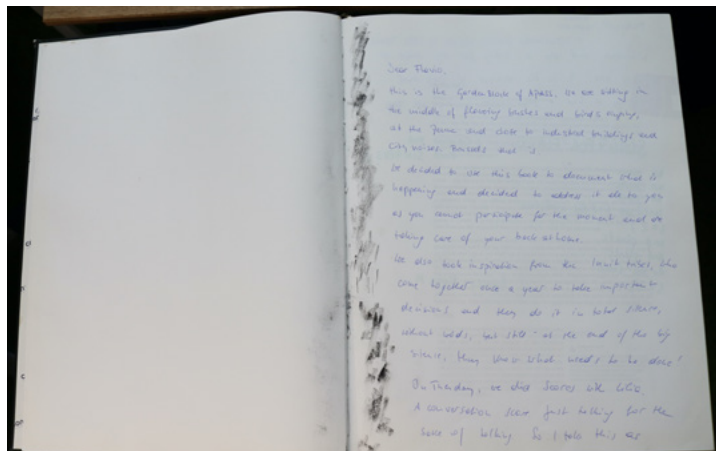 Dear Flavio,
this is the Gardenbook of Apass. We are sitting in
the middle of flowering bushes and birds singing,
at the same and close to industrial buildings and
city noises. Brussels and is
We decided to use this book to document what is
happening and decided to address it also to you
as you cannot participate for the moment and are
taking care of your back at home.
We also took inspiration from the Inuit, who
come together once a year to take important
decisions, and they do it in total silence,
without words, but still - at the end of the big
silence, they know what needs to be done!
On Tuesday, we did Scores with
A conversation score just talking for the
sake of talking. So I take this as